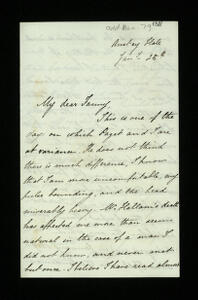 Anstey Hale
Jan? 28th
My dear Fanny,
This is one of the
days on which Paget and I are
at variance. He does not think
there is much difference, I know
that I am more uncomfortable, my
pulse bounding, and the head
miserably heavy. Mr. Hallam's death
has affected me more than seems
natural in the case of a man I
did not know, and never met
but once. I believe I have read almost